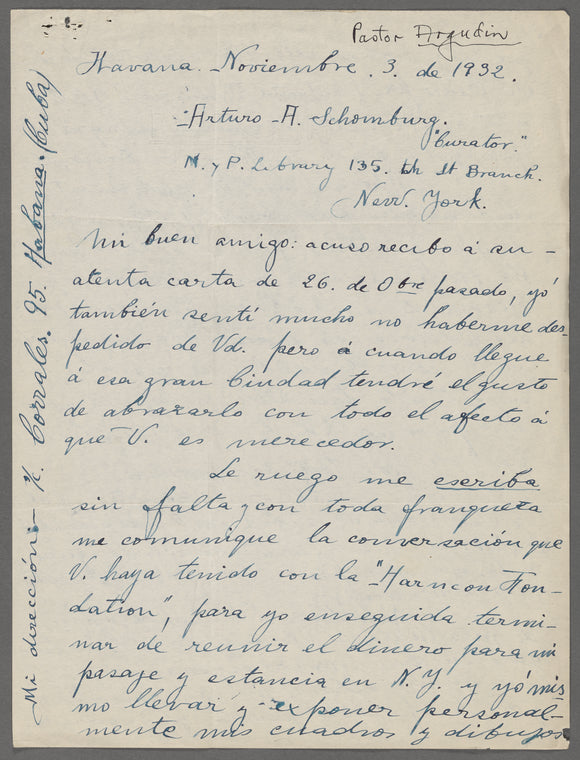 Pastor Argudin
Havana. Noviembre. 3. de 1932.
Arturo A. Schomburg.
"Curator."
N. y P. Library 135. th St Branch.
New. York.
Mi buen amigo: acuso recibo á su
atenta carta de 26. de Obre pasado, yó
también sentí mucho no haberme des-
pedido de Vd. pero á cuando llegue
á esa gran Ciudad tendré el gusto
de abrazarlo con todo el afecto á
que V. es merecedor.
Le ruego me escriba
sin falta y con toda franqueza
me comunique la conversación que
V. haya tenido con la "Harncon Fon-
dation", para yo enseguida termi-
nar de reunir el dinero para mi
pasaje y estancia en N. Y. y yó mis
mo llevar y exponer personal-
mente mis cuadros y dibujos
Mi dirección:- K. Corrales. 95. Habana. (Cuba)